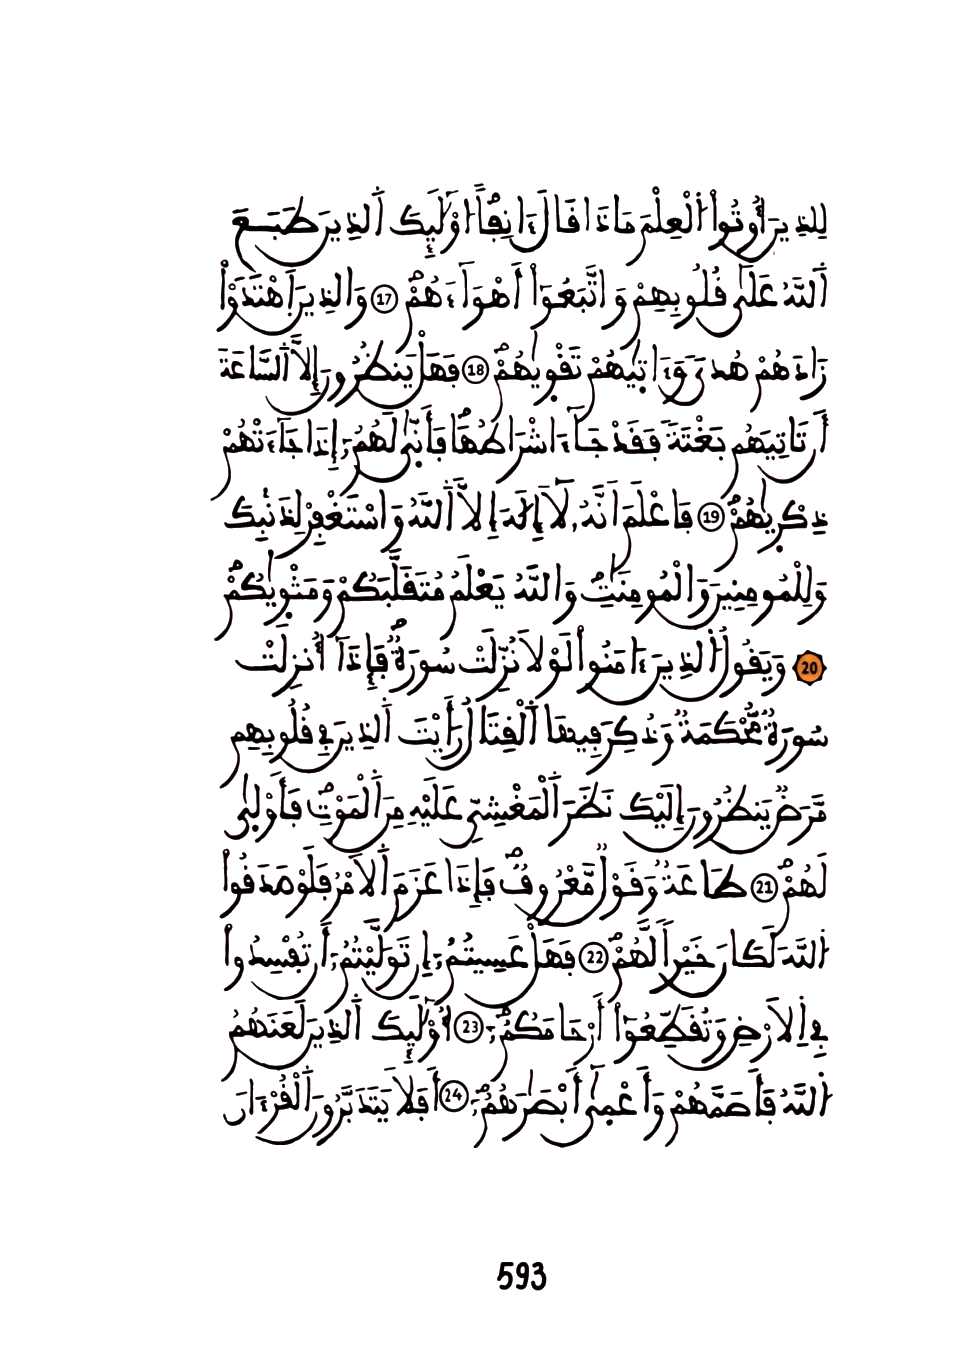 لِلذِينَ أُوتُوا۟ اُ۬لْعِلْمَ مَاذَا قَالَ ءَانِفاًۖ ا۟وْلَٰٓئِكَ اَ۬لذِينَ طَبَعَ
اَ۬للَّهُ عَلَىٰ قُلُوبِهِمْ وَاتَّبَعُوٓا۟ أَهْوَآءَهُمْۖ 17 وَالذِينَ اَ۪هْتَدَوْا۟
زَادَهُمْ هُدىٗ وَءَاتٜيٰهُمْ تَقْوٜيٰهُمْۖ 18 فَهَلْ يَنظُرُونَ إِلَّا اَ۬لسَّاعَةَ
أَن تَاتِيَهُم بَغْتَةٗۖ فَقَدْ جَآءَ اشْرَاطُهَاۖ فَأَنّٜىٰ لَهُمُۥٓ إِذَا جَآءَتْهُمْ
ذِكْرٜيٰهُمْۖ 19 فَاعْلَمَ اَنَّهُۥ لَآ إِلَٰهَ إِلَّا اَ۬للَّهُ وَاسْتَغْفِرْ لِذَنۢبِكَ
وَلِلْمُومِنِينَ وَالْمُومِنَٰتِۖ وَاللَّهُ يَعْلَمُ مُتَقَلَّبَكُمْ وَمَثْوٜيٰكُمْۖ
20 وَيَقُولُ اُ۬لذِينَ ءَامَنُوا۟ لَوْلَا نُزِّلَتْ سُورَةٞۖ فَإِذَآ أُنزِلَتْ
سُورَةٞ مُّحْكَمَةٞ وَذُكِرَ فِيهَا اَ۬لْقِتَالُ رَأَيْتَ اَ۬لذِينَ فِي قُلُوبِهِم
مَّرَضٞ يَنظُرُونَ إِلَيْكَ نَظَرَ اَ۬لْمَغْشِيِّ عَلَيْهِ مِنَ اَ۬لْمَوْتِۖ فَأَوْلٜىٰ
لَهُمْۖ 21 طَاعَةٞ وَقَوْلٞ مَّعْرُوفٞۖ فَإِذَا عَزَمَ اَ۬لَامْرُ فَلَوْ صَدَقُوا۟
اُ۬للَّهَ لَكَانَ خَيْراٗ لَّهُمْۖ 22 فَهَلْ عَسِيتُمُۥٓ إِن تَوَلَّيْتُمُۥٓ أَن تُفْسِدُوا۟
فِي اِ۬لَارْضِ وَتُقَطِّعُوٓا۟ أَرْحَامَكُمُۥٓۖ 23 أُوْلَٰٓئِكَ اَ۬لذِينَ لَعَنَهُمُ
اُ۬للَّهُ فَأَصَمَّهُمْ وَأَعْمٜىٰٓ أَبْصَٰرَهُمُۥٓۖ 24 أَفَلَا يَتَدَبَّرُونَ اَ۬لْقُرْءَانَ
593